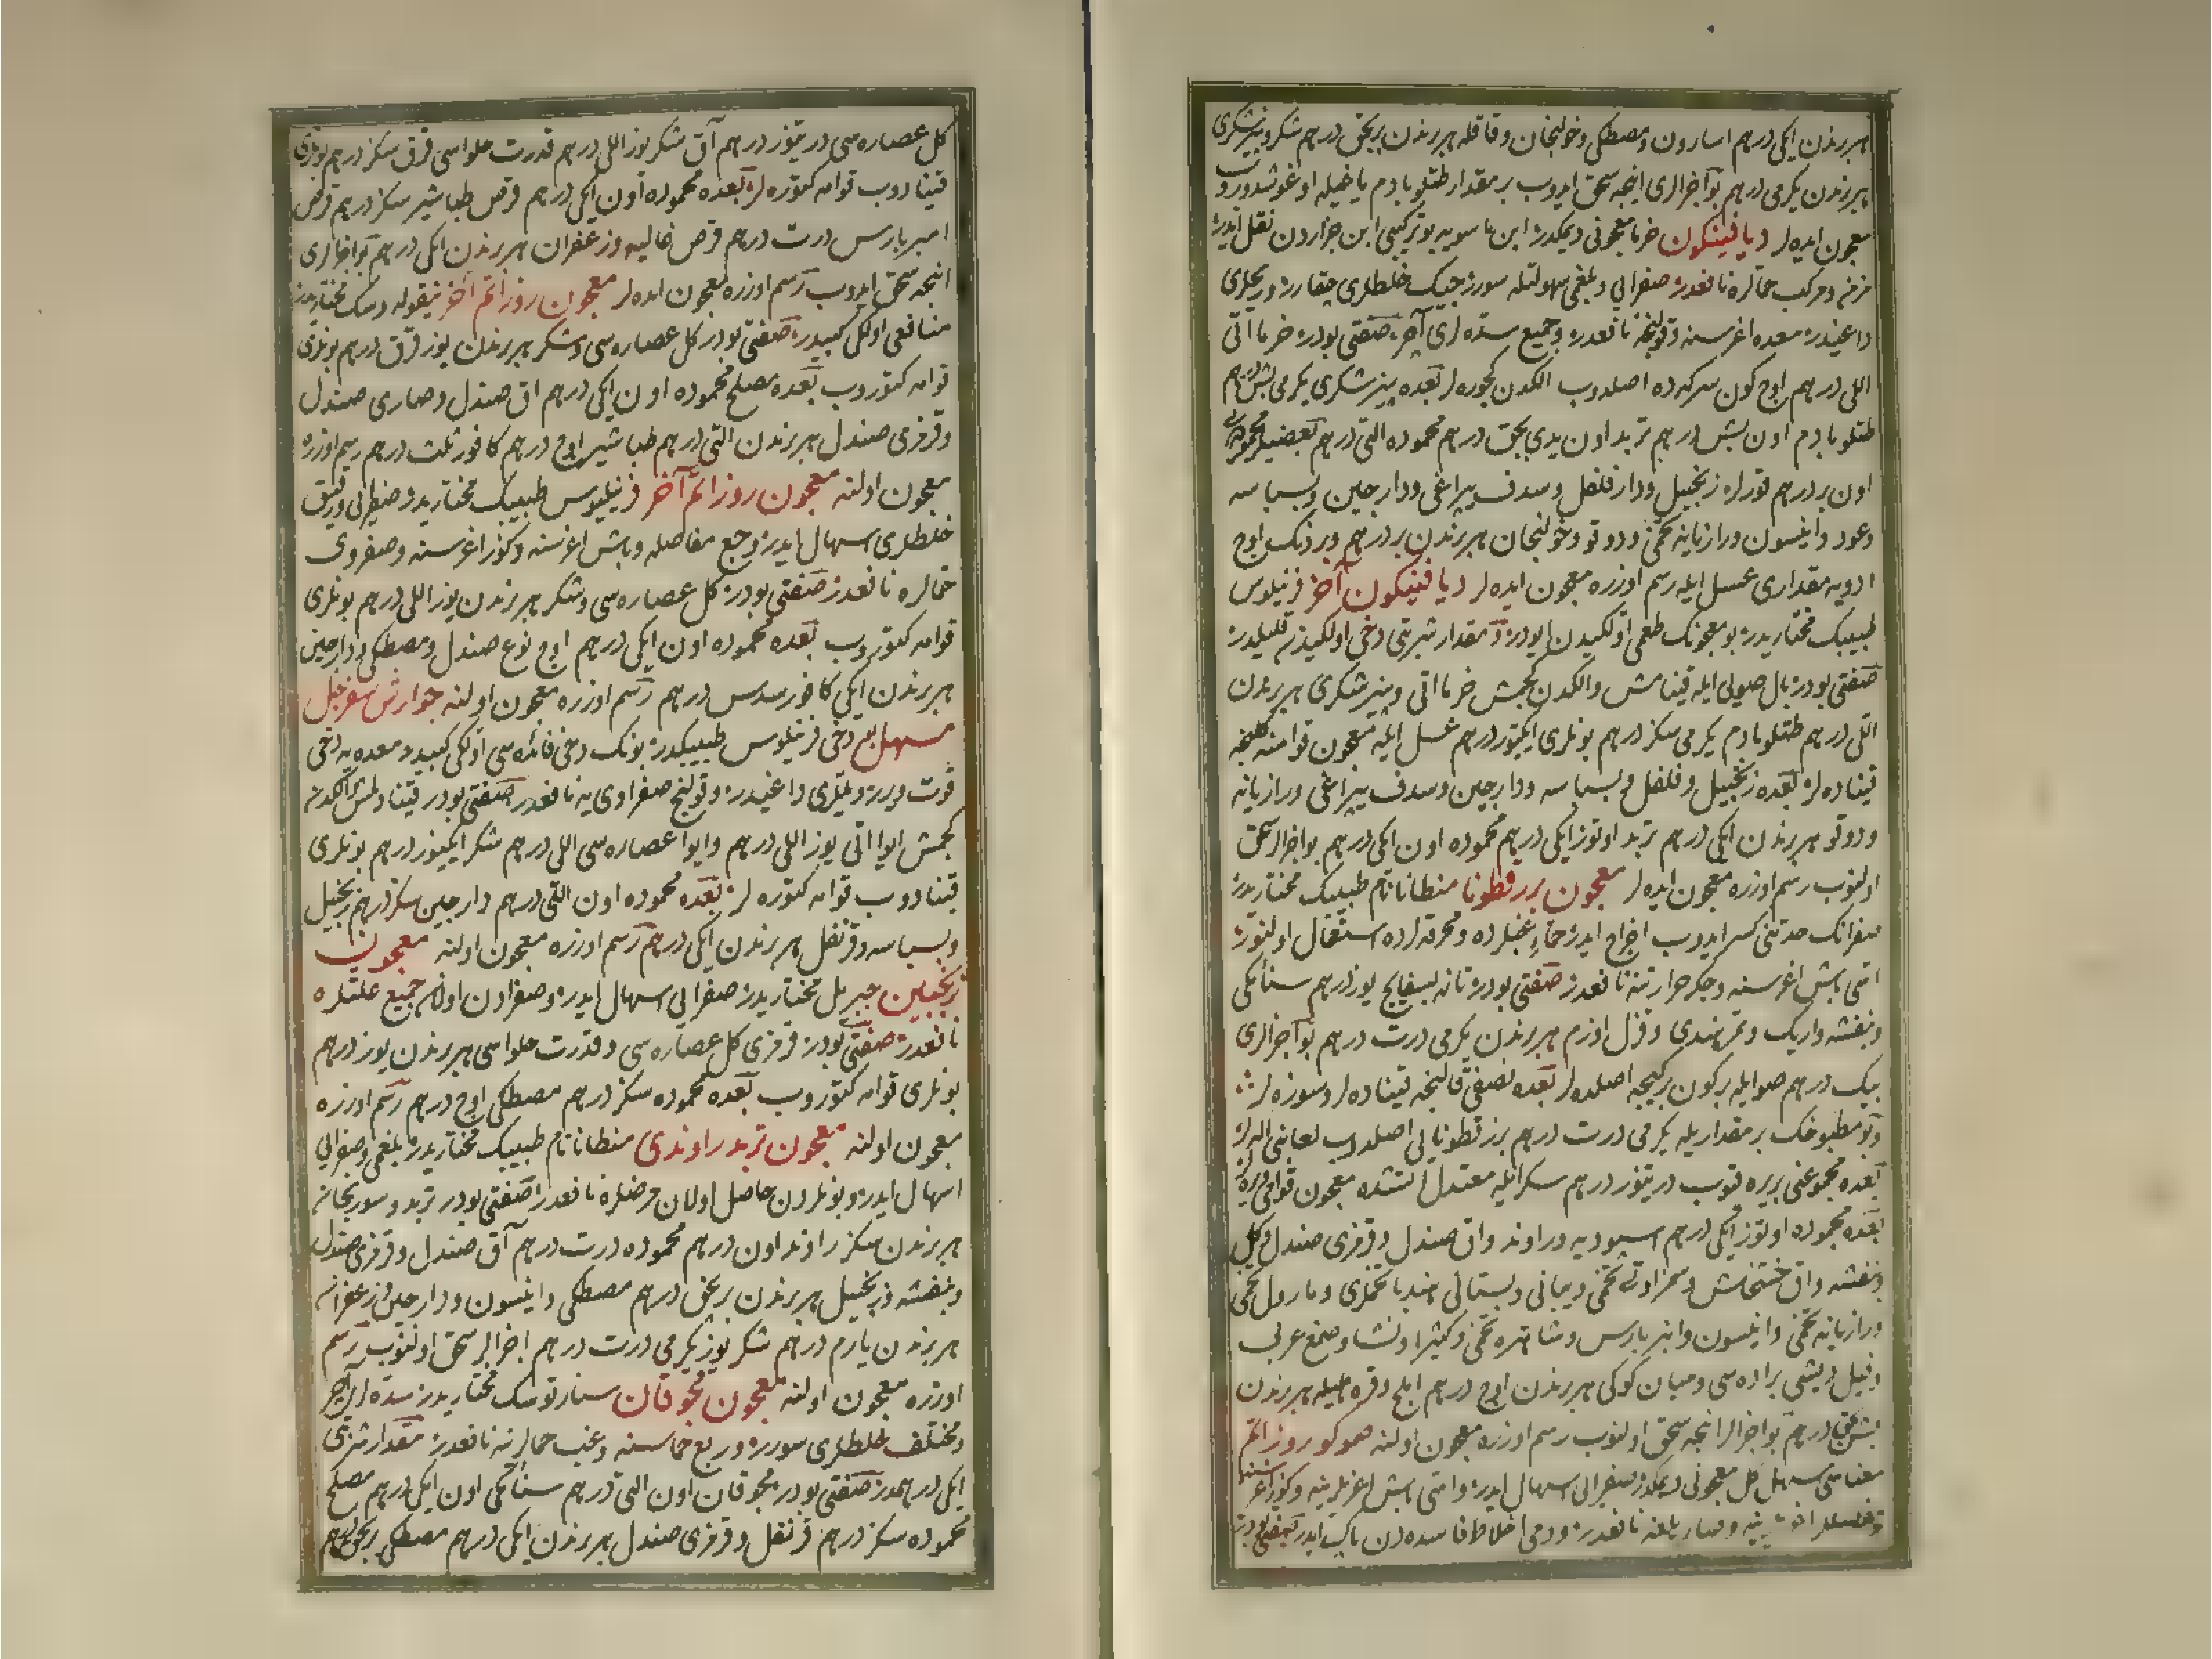 هر برندن ایکی درهم اسارون ومصطکی وخولنجان وقاقله هر برندن بر بچق درهم شکر وبنیز شکری
هر برندن یکرمی درهم بو اجزالری اینجه سحق ایدوب بر مقدار طتلو بادم یاغیله اوغوشدوروب
معجون ایده لر دیافینیکون خرما معجونی دیمکدر ابن ماسویه بو ترکیبی ابن جزاردن نقل ایدر
مزمنه ومرکب حمالره نافعدر صفرایی وبلغمی سهولتله سورر چیک خلطلری چقارر ویللری
داغیدر معده اغرسنه وقولنجه نافعدر وجمیع سده لری آچر صنعتی بودر خرما اتی
اللی درهم اوچ کون سرکه ده اصلدوب الکدن کچوره لر بعده بنیز شکری یکرمی بش درهم
طتلو بادم اون بش درهم تربد اون یدی بچق درهم محموده التی درهم بعضیلر محموده یی
اون بر درهم قورلر زنجبیل ودارفلفل وسدف یپراغی ودارچین وبسباسه
وعود وانیسون ورازیانه تخمی ودوقو وخولنجان هر برندن بر درهم وبرنک اوچ
ادویه مقداری عسل ایله رسم اوزره معجون ایده لر دیافینیکون آخر فرنیلوس
طبیبک مختاریدر بو معجونک طعمی اولکیدن ایودر ومقدار شربتی دخی اولکیدن قلیلدر
صنعتی بودر بال صویی ایله قینامش والکدن کچمش خرما اتی وبنیز شکری هر برندن
اللی درهم طتلو بادم یکرمی سکز درهم بونلری ایکیوز درهم عسل ایله معجون قوامنه کلنجه
قیناده لر بعده زنجبیل وفلفل وبسباسه ودارچین وسدف یپراغی ورازیانه
ودوقو هر برندن ایکی درهم تربد اوتوز ایکی درهم محموده اون ایکی درهم بو اجزالر سحق
اولنوب رسم اوزره معجون ایده لر معجون بزرقطونا منطانانام طبیبک مختاریدر
صفرانک حدتنی کسر ایدوب اخراج ایدر حماء غبلرده ومحرقه لرده استعمال اولنور
اتی باش اغرسنه وجکر حرارتنه نافعدر صنعتی بودر تازه بسفایج یوز درهم سنامکی
وبنفشه واریک وتمر هندی وقزل اوزم هر برندن یکرمی درت درهم بو اجزالری
بیک درهم صو ایله بر کون بر کیجه اصلده لر بعده نصفی قالنجه قیناده لر وسوزه لر
وبو مطبوخک بر مقداریله یکرمی درت درهم بزرقطونایی اصلدوب لعابنی اله لر
بعده مجموعنی بریره قویوب دریتوز درهم سکر ایله معتدل اتشده معجون قوامی ویره لر
بعده محموده اوتوز ایکی درهم اسپودیه وراوند واق صندل وقرمزی صندل وکل
وبنفشه واق خشخاش وسمز اوتی تخمی ویبانی وبستانی هندبا تخملری ومارول تخمی
ورازیانه تخمی وانیسون وانبرباریس وشاهتره تخمی وکثیرا ونشا وصمغ عربی
وفیل دیشی براده سی ومیان کوکی هر برندن اوچ درهم املج وقره هلیله هر برندن
بش بچق درهم بو اجزالر اینجه سحق اولنوب رسم اوزره معجون اولنه هموکو روزاتم
معناسی مسهل کل معجونی دیمکدر صفرایی اسهال ایدر واتی باش اغریلرینه وکوز اغرسنه
ومفصللر اغریسنه وصاریلغه نافعدر ودمی اخلاط فاسده دن پاک ایدر صنعتی بودر
کل عصاره سی دریتوز درهم آق شکر یوز اللی درهم قدرت حلواسی قرق سکز درهم بونلری
قینادوب قوامه کتوره لر بعده محموده اون ایکی درهم قرص طباشیر سکز درهم قرص
امبرباریس درت درهم قرص غالیه وزعفران هر برندن ایکی درهم بو اجزالری
اینجه سحق ایدوب رسم اوزره معجون ایده لر معجون روزاتم آخر نیقوله وسک مختاریدر
منافعی اولکی کبیدر صنعتی بودر کل عصاره سی وشکر هر برندن یوز قرق درهم بونلری
قوامه کتوروب بعده مصلح محموده اون ایکی درهم اق صندل وصاری صندل
وقرمزی صندل هر برندن التی درهم طباشیر اوچ درهم کافور ثلث درهم رسم اوزره
معجون اولنه معجون روزاتم آخر فرنیلوس طبیبک مختاریدر صفرایی ورقیق
خلطلری اسهال ایدر وجع مفاصله وباش اغرسنه وکوز اغرسنه وصفروی
حمالره نافعدر صنعتی بودر کل عصاره سی وشکر هر برندن یوز اللی درهم بونلری
قوامه کتوروب بعده محموده اون ایکی درهم اوچ نوع صندل ومصطکی ودارچین
هر برندن ایکی کافور سدس درهم رسم اوزره معجون اولنه جوارش سفرجل
مسهل بو دخی فرنیلوس طبیبکدر بونک دخی فائده سی اولکی کبیدر معده یه دخی
قوت ویرر ویللری داغیدر وقولنج صفراوی یه نافعدر صنعتی بودر قینادلمش والکدن
کچمش ایوا اتی یوز اللی درهم وایوا عصاره سی اللی درهم شکر ایکیوز درهم بونلری
قینادوب قوامه کتوره لر بعده محموده اون التی درهم دارچین سکز درهم زنجبیل
وبسباسه وقرنفل هر برندن ایکی درهم رسم اوزره معجون اولنه معجون
ترنجبین جبریل مختاریدر صفرایی اسهال ایدر وصفرادن اولان جمیع علتلره
نافعدر صنعتی بودر قرمزی کل عصاره سی وقدرت حلواسی هر برندن یوز درهم
بونلری قوامه کتوروب بعده محموده سکز درهم مصطکی اوچ درهم رسم اوزره
معجون اولنه معجون تربد راوندی منطانانام طبیبک مختاریدر بلغمی وصفرایی
اسهال ایدر وبونلردن حاصل اولان مرضلره نافعدر صنعتی بودر تربد وسورنجان
هر برندن سکز راوند اون درهم محموده درت درهم آق صندل وقرمزی صندل
وبنفشه وزنجبیل هر برندن بر بچق درهم مصطکی وانیسون ودارچین وزعفران
هر برندن یارم درهم شکر یوز یکرمی درت درهم اجزالر سحق اولنوب رسم
اوزره معجون اولنه معجون محوقان سنارتوسک مختاریدر سده لری آچر
ومختلف خلطلری سورر وربع حماسنه وغب حمالرنه نافعدر مقدار شربتی
ایکی درهمدر صنعتی بودر محوقان اون التی درهم سنامکی اون ایکی درهم مصلح
محموده سکز درهم قرنفل وقرمزی صندل هر برندن ایکی درهم مصطکی بر بچق درهم